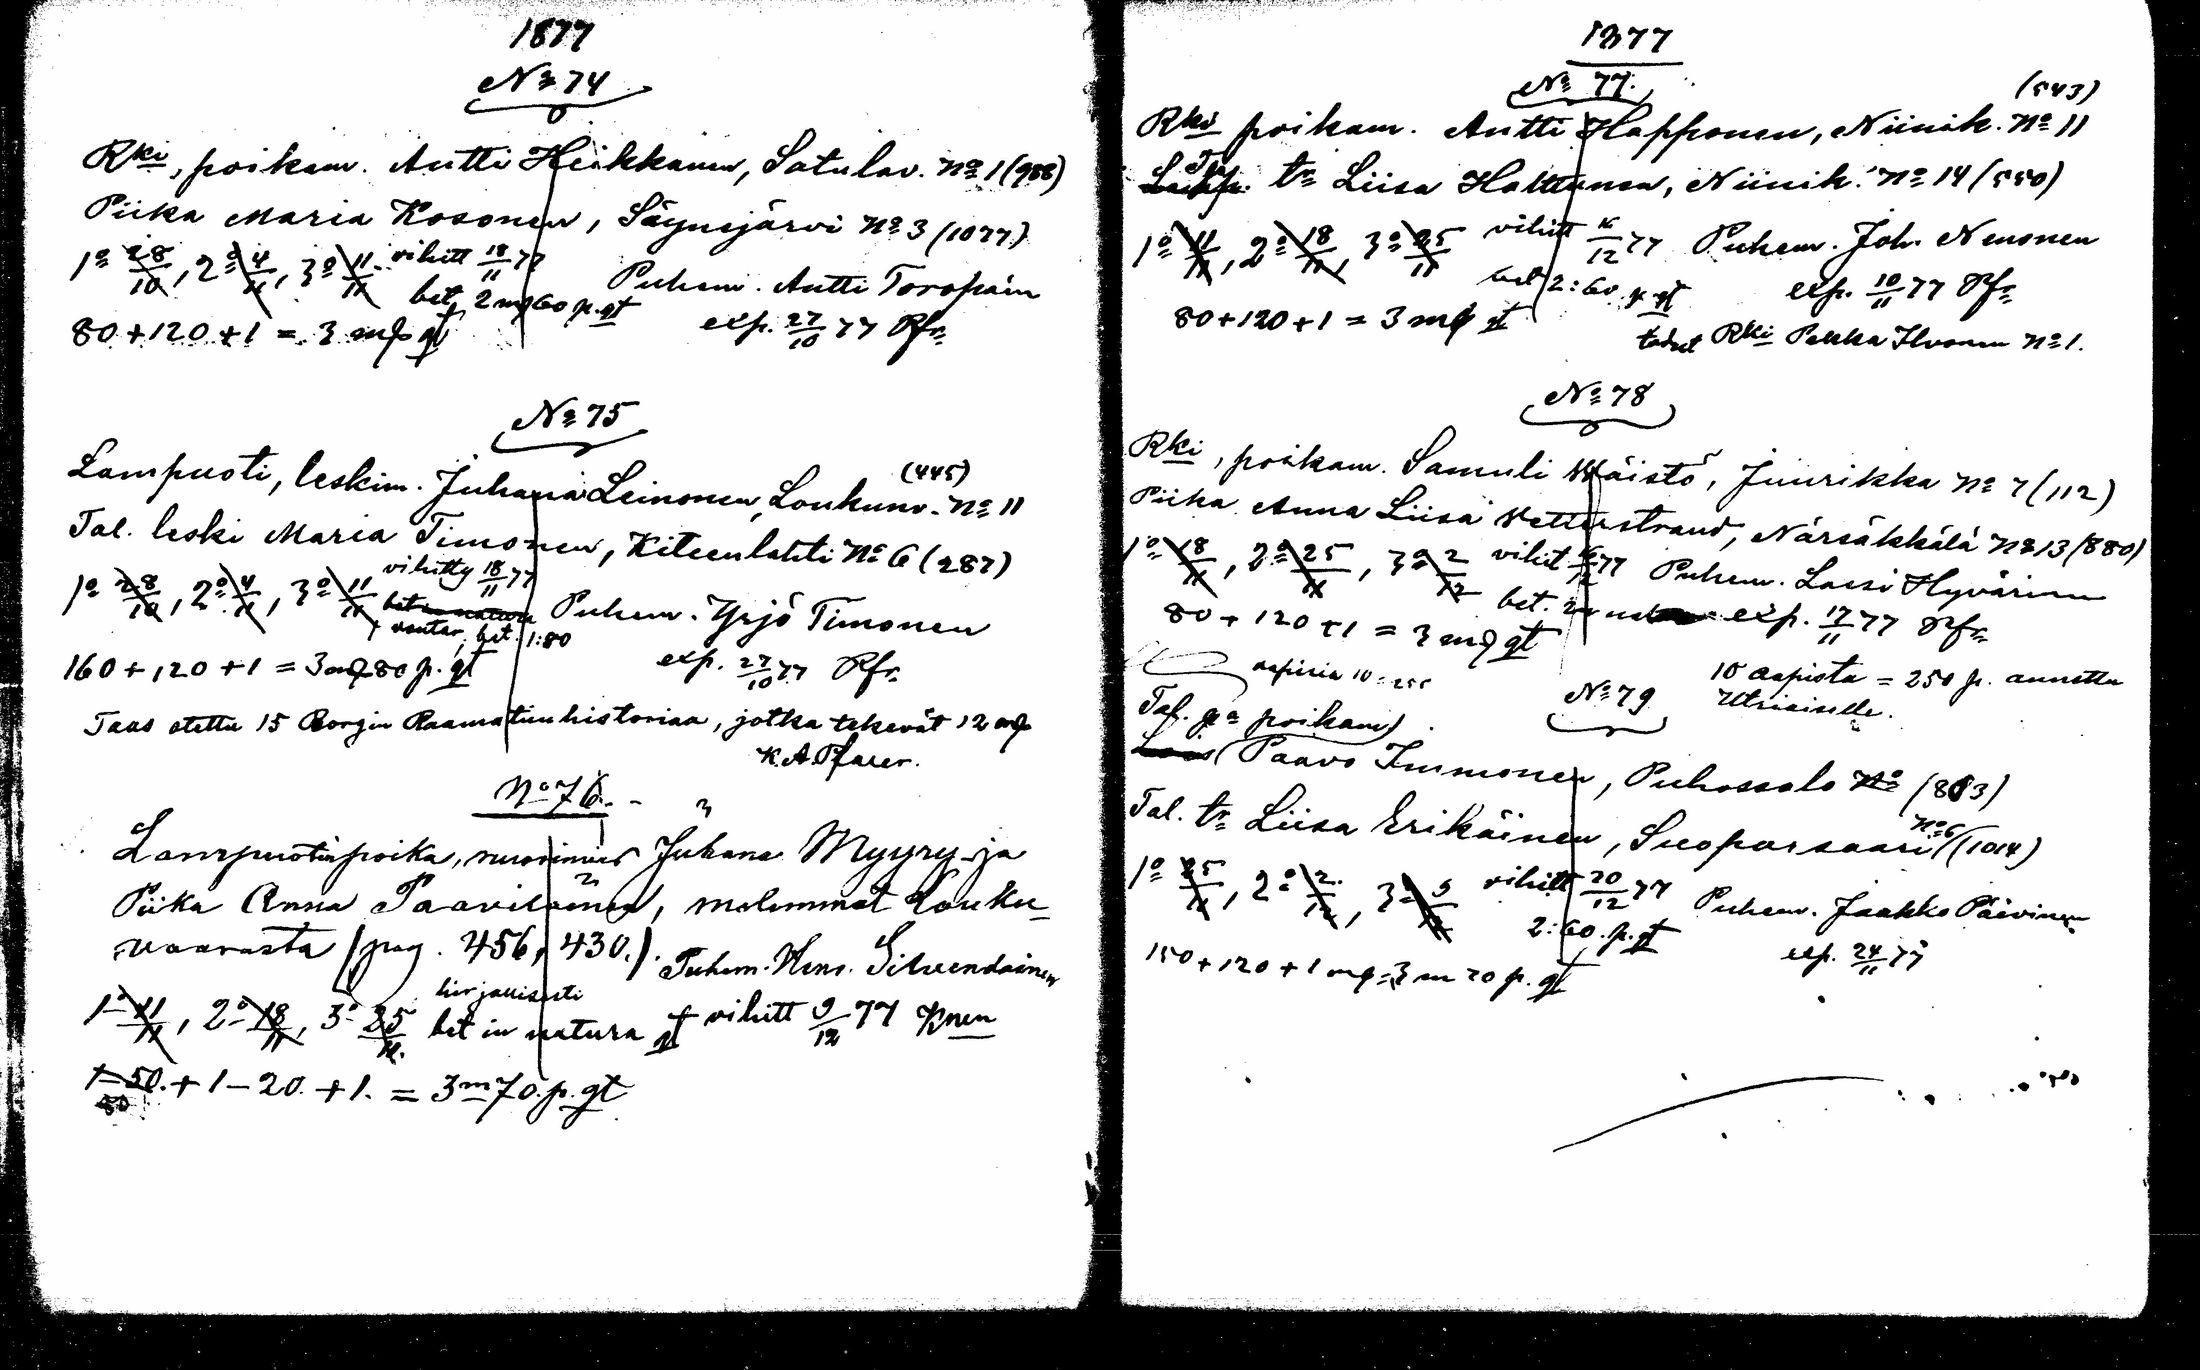 1877
No 74
Rki, poikam. Antti Heikkanen, Satulav. No 1 (988)
Piika Maria Kosonen, Säynejärvi No 3 (1077)
1o 28/10, 2o 4/11, 3o 11/11 vihitt 18/11 77
bet. 2 m 60 p. gt Puhem. Antti Toropain
80 + 120 + 1 = 3 mk gt exp. 27/10 77 Rfr
No 75
Lampuoti, leskim. Juhana Leinonen, Loukunv. No 11 (445)
Tal. leski Maria Timonen, Kiteenlahti No 6 (287)
1o 28/10, 2o 4/11, 3o 11/11 vihitty 18/11 77
bet in natura Puhem. Yrjö Timonen
bet. 1:80
160 + 120 + 1 = 3 mk 80 p. gt exp. 27/10 77 Rfr
Taas otettu 15 Borgin Raamatunhistoriaa, jotka tekevät 12 mk
No 76.
Lampuotinpoika, nuorimies Juhana Myyry ja
Piika Anna Paavilainen, molemmat Louku-
vaarasta (pag. 456, 430.). Puhem. Hens. Silvendoinen
1o 11/11, 2o 18/11, 3o 25/11. kirjallisesti
bet in natura gt vihitt 9/12 77 Knen
1-50. + 1-20. + 1. = 3 m 70. p. gt
80
1877
No 77.
Rki poikam. Antti Happonen, Niinik. No 11 (543)
tr Liisa Halttunen, Niinik. No 14 (550)
1o 11/11, 2o 18/11, 3o 25/11 vihitt 16/12 77 Puhem. Joh. Nenonen
bet 2:60 p. gt exp. 10/11 77 Rfr
80 + 120 + 1 = 3 mk gt
todist Rki Pekka Ilvonen No 1.
No 78
Rki, poikam. Samuli Wäistö, Juurikka No 7 (112)
Piika Anna Liisa Vetterstrand, Närsäkkälä No 13 (880)
1o 18/11, 2o 25/11, 3o 2/12 vihit 16/12 77 Puhem. Lassi Hyvärinen
bet. exp. 17/11 77 Rfr
80 + 120 + 1 = 3 mk gt
aapisia 10 = 250
10 aapista = 250 p. annettu
Utriaiselle.
No 79
Tal. poikam
Paavo Immonen, Puhossalo No (803)
Tal. tr Liisa Erikäinen, Suoparsaari No 6 (1014)
1o 25/11, 2o 2/12, 3o 9/12 vihitt 20/12 77 Puhem. Jaakko Päivinen
2:60. p. gt
150 + 120 + 1 mk = 3 m 70 p. gt exp. 24/11 77